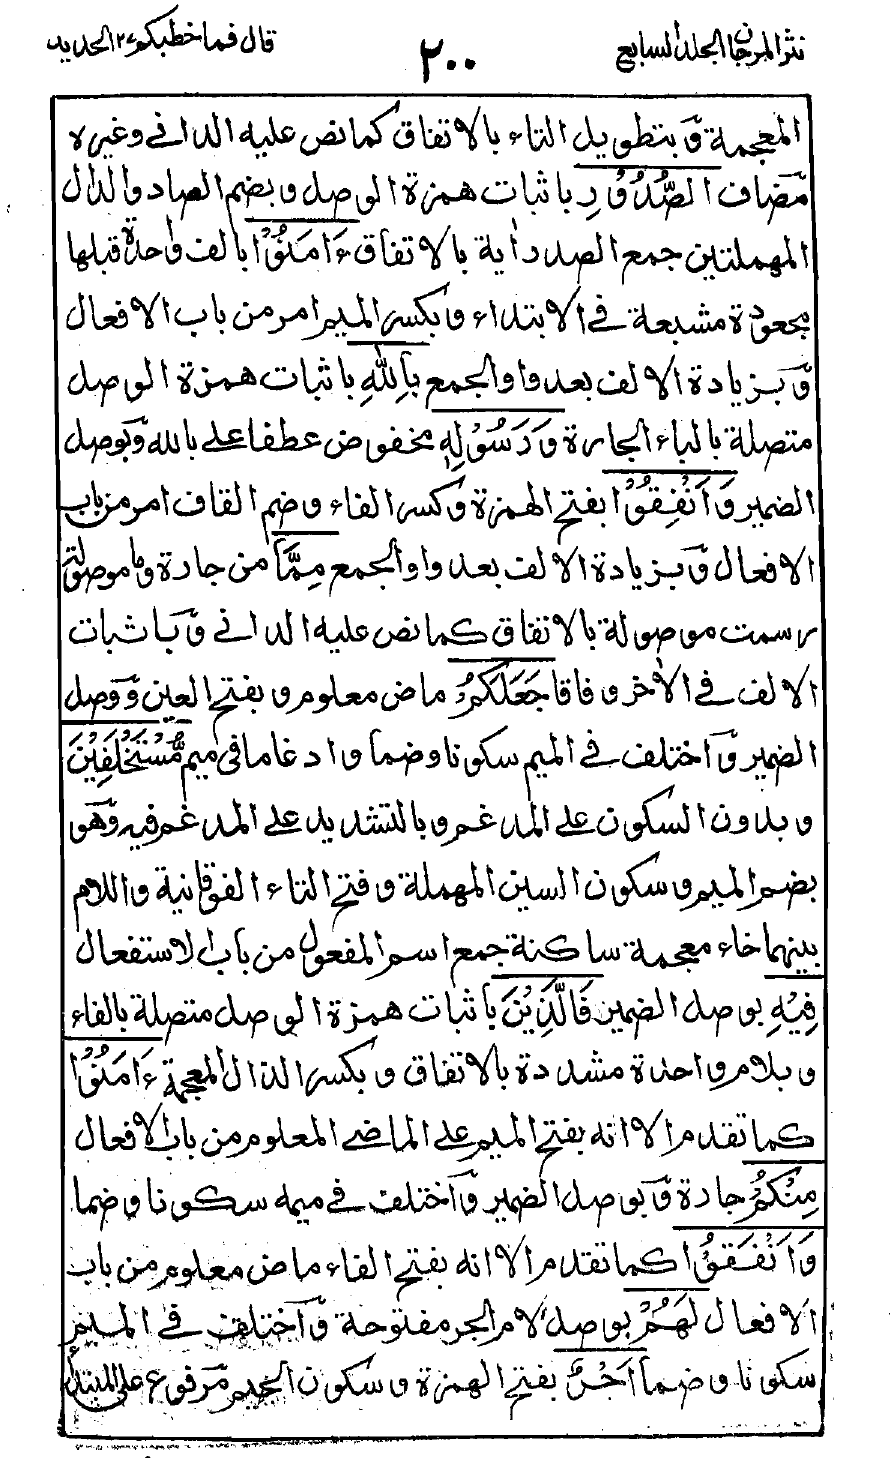 نثر المرجان المجلد السابع
٢٠٠
قال فما خطبكم ٢٧ الحديد
المعجمة وبتطويل التاء بالاتفاق كما نص عليه الداني وغيره
مضاف الصُّدُوْرِ باثبات همزة الوصل وبضم الصاد والدال
المهملتين جمع الصدر اٰية بالاتفاق ءَامَنُوْا بالف واحدة قبلها
مجعودة مشبعة في الابتداء وبكسر الميم امر من باب الافعال
وبزيادة الالف بعد واو الجمع بِاللّٰهِ باثبات همزة الوصل
متصلة بالباء الجارة وَرَسُوْلِهٖ مخفوض عطفا على بالله وبوصل
الضمير وَاَنْفِقُوْا بفتح الهمزة وكسر الفاء وضم القاف امر من باب
الافعال وبزيادة الالف بعد واو الجمع مِمَّا من جارة وما موصولة
رسمت موصولة بالاتفاق كما نص عليه الداني وباثبات
الالف في الاٰخر وفاقا جَعَلَكُمْ ماض معلوم وبفتح العين ووصل
الضمير واختلف في الميم سكونا وضما وادغاما في ميم مُّسْتَخْلَفِيْنَ
وبدون السكون على المدغم وبالتشديد على المدغم فيه وهو
بضم الميم وسكون السين المهملة وفتح التاء الفوقانية واللام
بينهما خاء معجمة ساكنة جمع اسم المفعول من باب الاستفعال
فِيْهِ بوصل الضمير فَالَّذِيْنَ باثبات همزة الوصل متصلة بالفاء
وبلام واحدة مشددة بالاتفاق وبكسر الذال المعجمة ءَامَنُوْا
كما تقدم الا انه بفتح الميم على الماضي المعلوم من باب الافعال
مِنْكُمْ جارة وبوصل الضمير واختلف في ميمه سكونا وضما
وَاَنْفَقُوْا كما تقدم الا انه بفتح الفاء ماض معلوم من باب
الافعال لَهُمْ بوصل لام الجر مفتوحة واختلف في الميم
سكونا وضما اَجْرٌ بفتح الهمزة وسكون الجيم مرفوع على المبتدأ